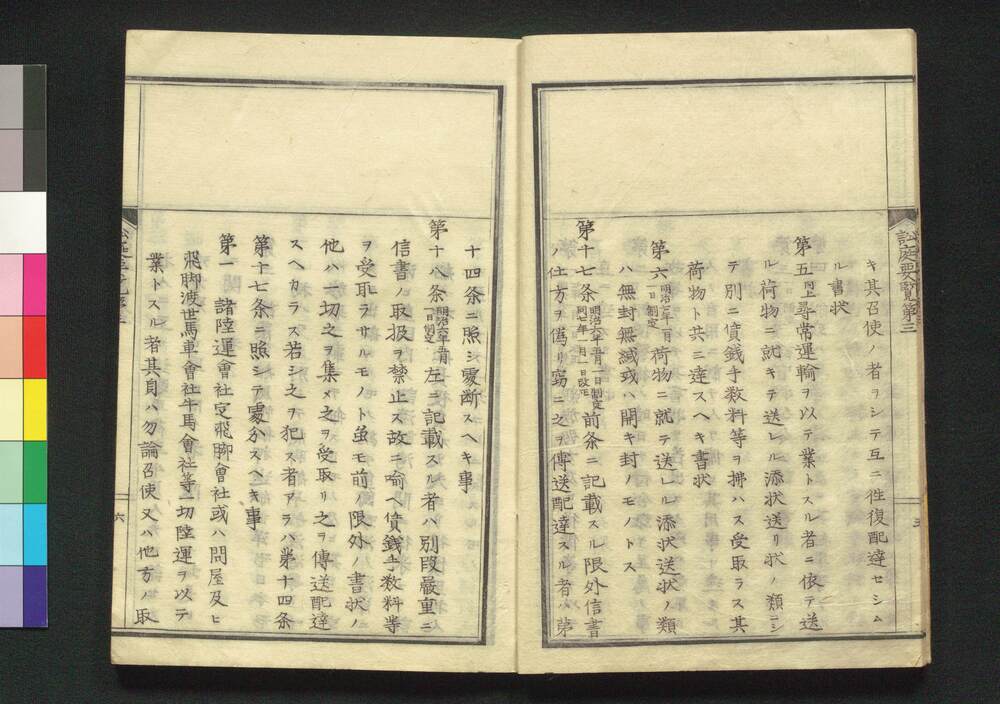 訟庭要覧第三
キ其召使ノ者ヲシテ互ニ徃復配達セシム
ル書状
第五同上尋常運輸ヲ以テ業トスル者ニ依テ送
ル荷物ニ就キテ送レル添状送リ状ノ類ニシ
テ別ニ賃銭手数料等ヲ拂ハス受取ラス其
荷物ト共ニ達スヘキ書状
第六明治七年一月一日制定荷物ニ就テ送レル添状送状ノ類
ハ無封無緘或ハ開キ封ノモノトス
第十七条明治六年五月一日制定同七年一月一日改定前条ニ記載スル限外信書
ノ仕方ヲ偽リ窃ニ之ヲ傳送配達スル者ハ第
五
十四条ニ照シ處断スヘキ事
第十八条明治六年五月一日制定左ニ記載スル者ハ別段嚴重ニ
信書ノ取扱ヲ禁止ス故ニ喩ヘ賃銭手数料等
ヲ受取ラサルモノト虽モ前ノ限外ノ書状ノ
他ハ一切之ヲ集メ之ヲ受取リ之ヲ傳送配達
スヘカラス若シ之ヲ犯ス者アラハ第十四条
第十七条ニ照シテ處分スヘキ事
第一 諸陸運會社定飛脚會社或ハ問屋及ヒ
飛脚渡世馬車會社牛馬會社等一切陸運ヲ以テ
業トスル者其自ハ勿論召使又ハ他方ノ取
六